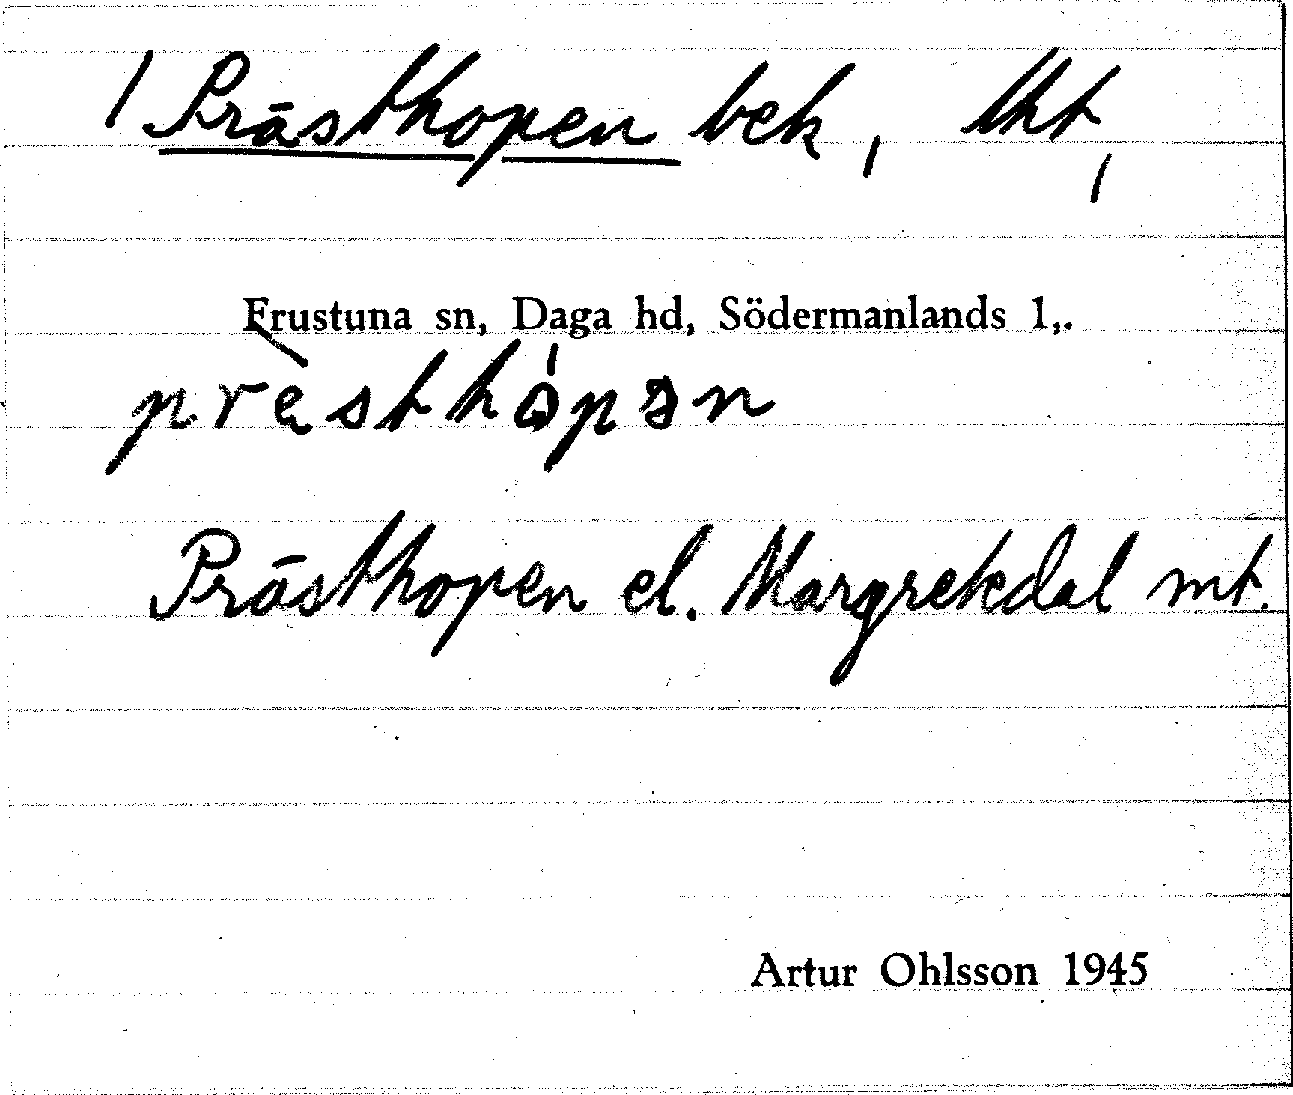 / Prästhopen , lht,
Frustuna sn, Daga hd, Södermanlands l,.
prèsthǫ́pən
Prästhopen el. Margretedal mt.
Artur Ohlsson 1945